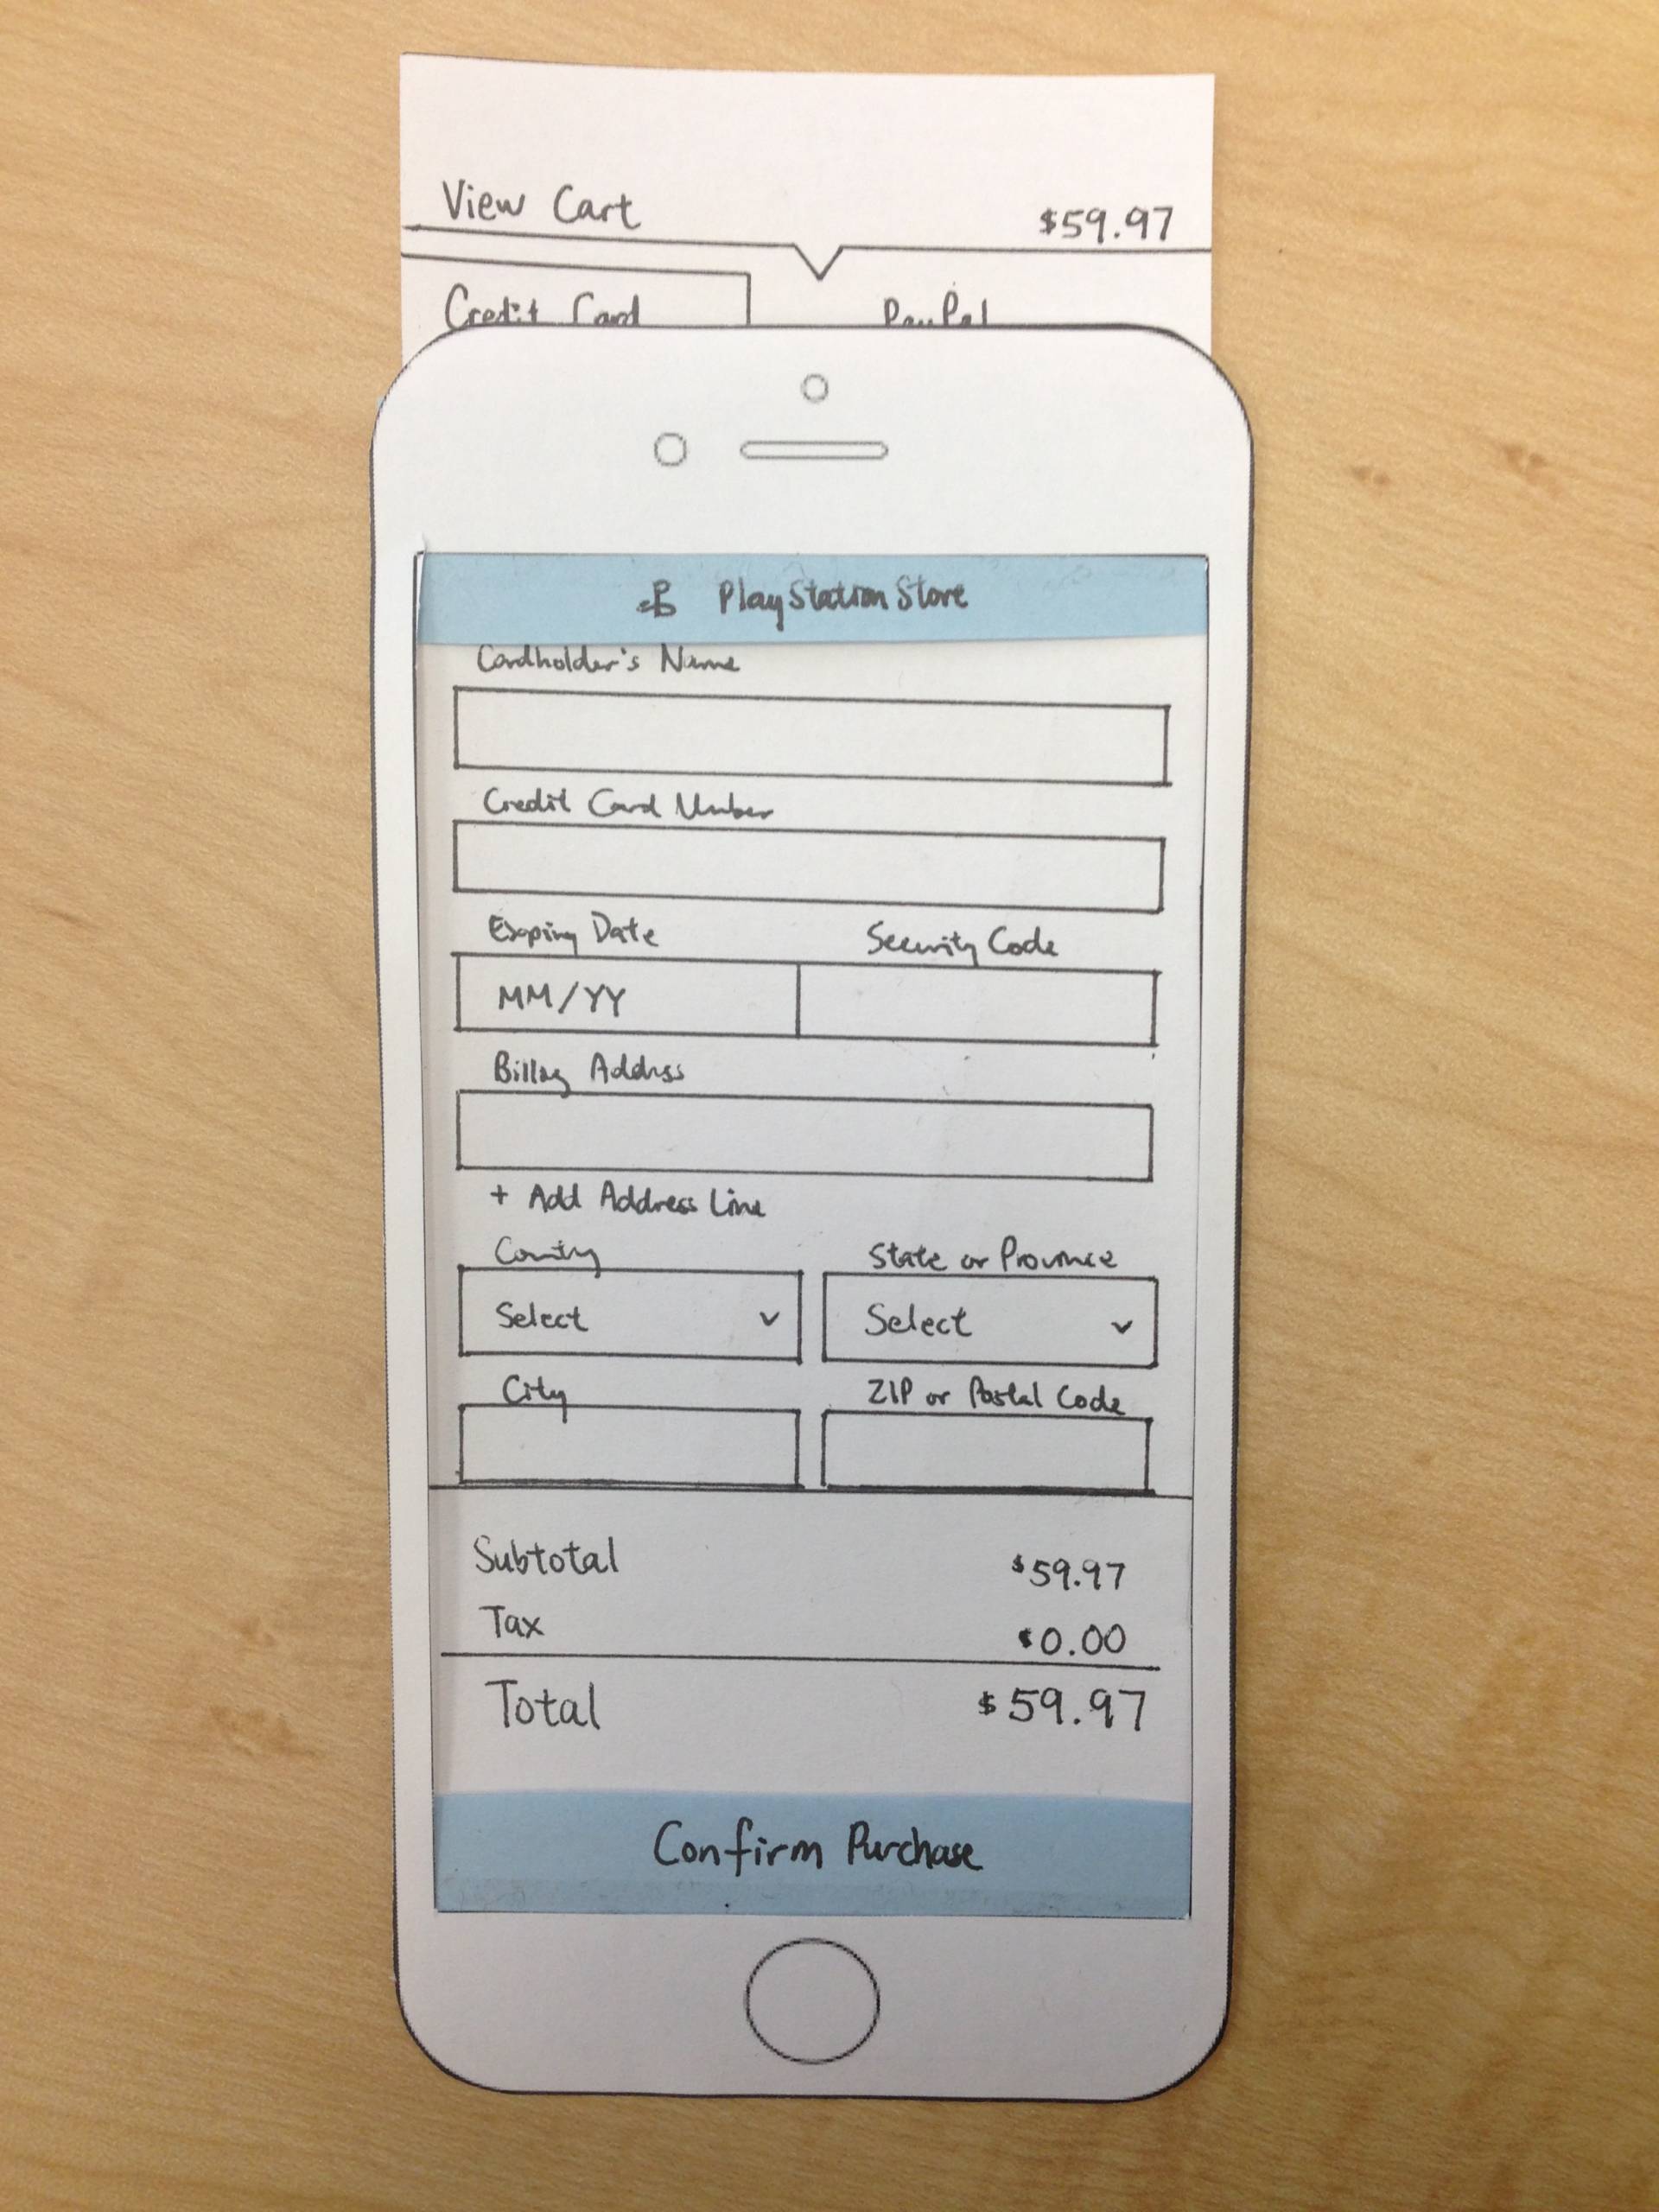 View Cart $59.97
Credit Card PayPal
PlayStation Store
Cardholder's Name
Credit Card Number
Date Security Code
MM/YY
Billing Address
+ Add Address Line
Country State or Province
Select Select
City ZIP or Postal Code
Subtotal $59.97
Tax $0.00
Total $59.97
Confirm Purchase